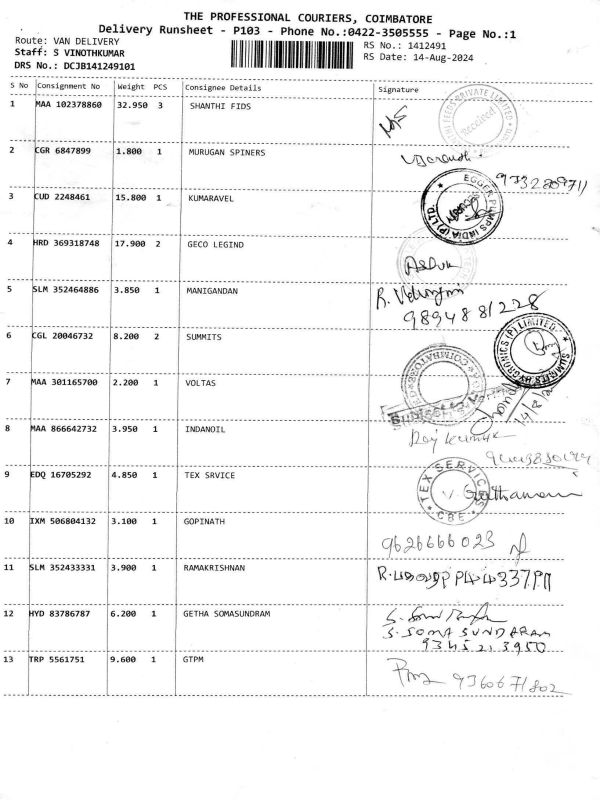 THE PROFESSIONAL COURIERS, COIMBATORE
Delivery Runsheet - P103 - Phone No.:0422-3505555 - Page No.:1
Route: VAN DELIVERY
RS No.: 1412491
Staff: S VINOTHKUMAR
RS Date: 14-Aug-2024
DRS No.: DCJB141249101
S No Consignment No Weight PCS Consignee Details Signature
1 MAA 102378860 32.950 3 SHANTHI FIDS
PRIVATE LIMITED
Received
2 CGR 6847899 1.800 1 MURUGAN SPINERS
3 CUD 2248461 15.800 1 KUMARAVEL
EGGER PUMPS INDIA (P) LTD.
4 HRD 369318748 17.900 2 GECO LEGIND
5 SLM 352464886 3.850 1 MANIGANDAN
9894881228
6 CGL 20046732 8.200 2 SUMMITS
SUMMITS HYGRONICS (P) LIMITED
7 MAA 301165700 2.200 1 VOLTAS
COIMBATORE
8 MAA 866642732 3.950 1 INDANOIL
9 EDQ 16705292 4.850 1 TEX SRVICE
TEX SERVICES
CBE
10 IXM 506804132 3.100 1 GOPINATH
9626666023
11 SLM 352433331 3.900 1 RAMAKRISHNAN
12 HYD 83786787 6.200 1 GETHA SOMASUNDRAM
S. SOMA SUNDARAM
9345213950
13 TRP 5561751 9.600 1 GTPM
9360671802